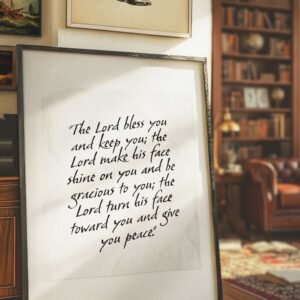 "The Lord bless you
and keep you; the
Lord make his face
shine on you and be
gracious to you; the
Lord turn his face
toward you and give
you peace."